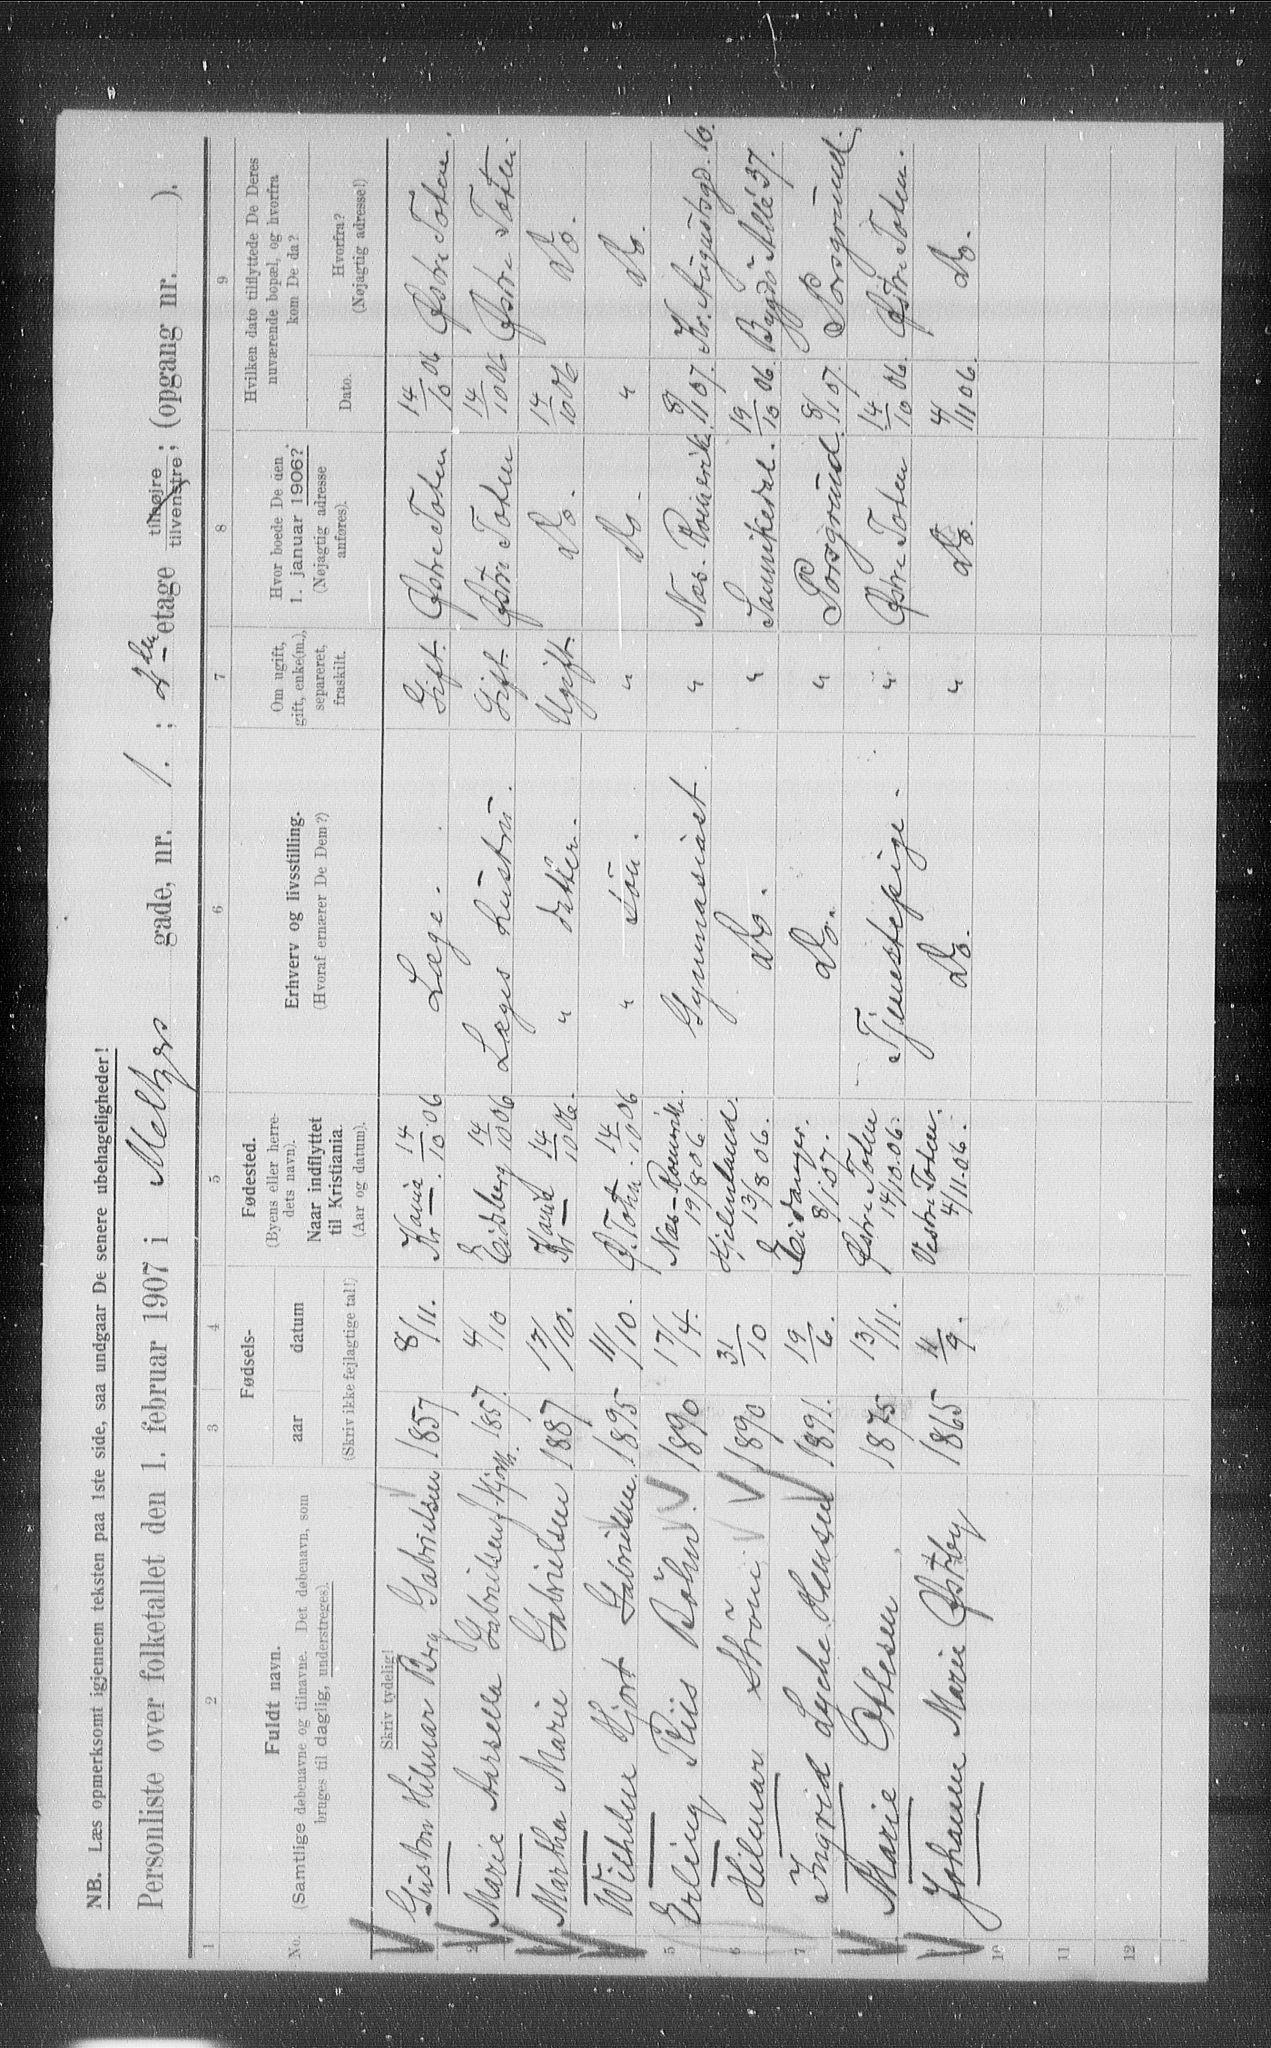 NB. Læs opmerksomt igjennem teksten paa 1ste side, saa undgaar De senere ubehageligheder!
Personliste over folketallet den 1. februar 1907 i Meltzers gade, nr. 1. ; etage tilhøjre tilvenstre; (opgang nr. ).
1 2 3 4 5 6 7 8 9
No. Fuldt navn. (Samtlige døbenavne og tilnavne. Det døbenavn, som bruges til daglig, understreges). Fødsels- aar datum Fødested. (Byens eller herredets navn). Naar indflyttet til Kristiania. (Aar og datum). Erhverv og livsstilling. (Hvoraf ernærer De Dem?) Om ugift, gift, enke(m.), separeret, fraskilt. Hvor boede De den 1. januar 1906? (Nøjagtig adresse anføres). Hvilken dato tilflyttede De Deres nuværende bopæl, og hvorfra kom De da? Dato. Hvorfra? (Nøjagtig adresse!)
Skriv tydelig! (Skriv ikke fejlagtige tal!)
Gustav Hilmar Berg Gabrielsen 1857 8/11. Kr.ania 14/10 06 Læge. Gift. Østre Toten 14/10 06 Østre Toten.
2 Marie Gabrielsen f. Hjort. 1857. 4/10 Eidsberg 14/10 06 Læges hustru. Gift. Østre Toten 14/10 06 Østre Toten.
Martha Marie Gabrielsen 1887 17/10. Kr.ania 14/10 06. " datter. Ugift. Do. 14/10 06 Do.
Wilhelm Hjort Gabrielsen. 1895 11/10. Ø. Toten. 14/10 06 " søn. " Do. " Do.
5 Erling Riis Bøhn. 1890 17/4. Næs-Romerike. 19/8 06. Gymnasiast. " Næs-Romerike. 8/1 07. Kr. Augustsgd. 10.
6 Hilmar Strøm. 1890 31/10 Hjelmeland. 13/8 06. Do. " Sannikedal. 19/10 06. Bygdø Allé 37.
7 Ingrid Lyche Hansen 1891. 19/6. Eidanger. 8/1 07. Do. " Porsgrund. 8/1 07. Porsgrund.
Marie Othesen. 1875 13/11. Østre Toten 14/10.06. Tjenestepige. " Østre Toten 14/10 06. Østre Toten.
Johanne Marie Østby 1865 11/9. Vestre Toten. 4/11.06. Do. " Do. 4/11 06. Do.
10
11
12